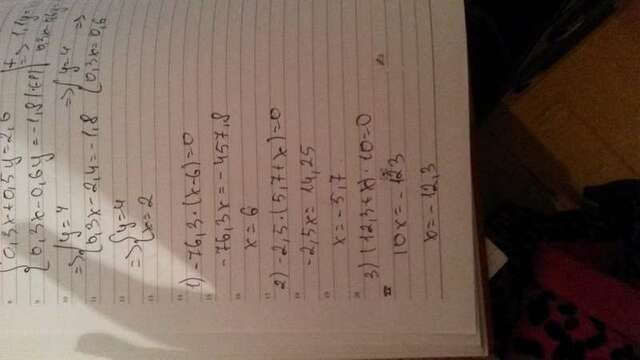 {0,3x+0,5y=2,6
{0,3x-0,6y=-1,8 |·(-1) + => 1,1y=
=> {y=4 => {y=4 =>
{0,3x-2,4=-1,8 {0,3x=0,6
=> {y=4
{x=2
1) -76,3·(x-6)=0
-76,3x=-457,8
x=6
2) -2,5·(5,7+x)=0
-2,5x=14,25
x=-5,7
3) (12,3+x)·10=0
10x=-123
x=-12,3